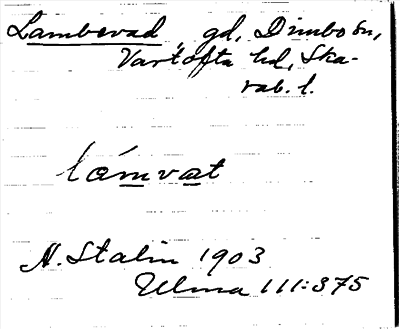 Lambevad gd, Dimbo sn,
Vartofta hd, Ska-
rab. l.
lámvat
N. Stalin 1903
Ulma 111:375